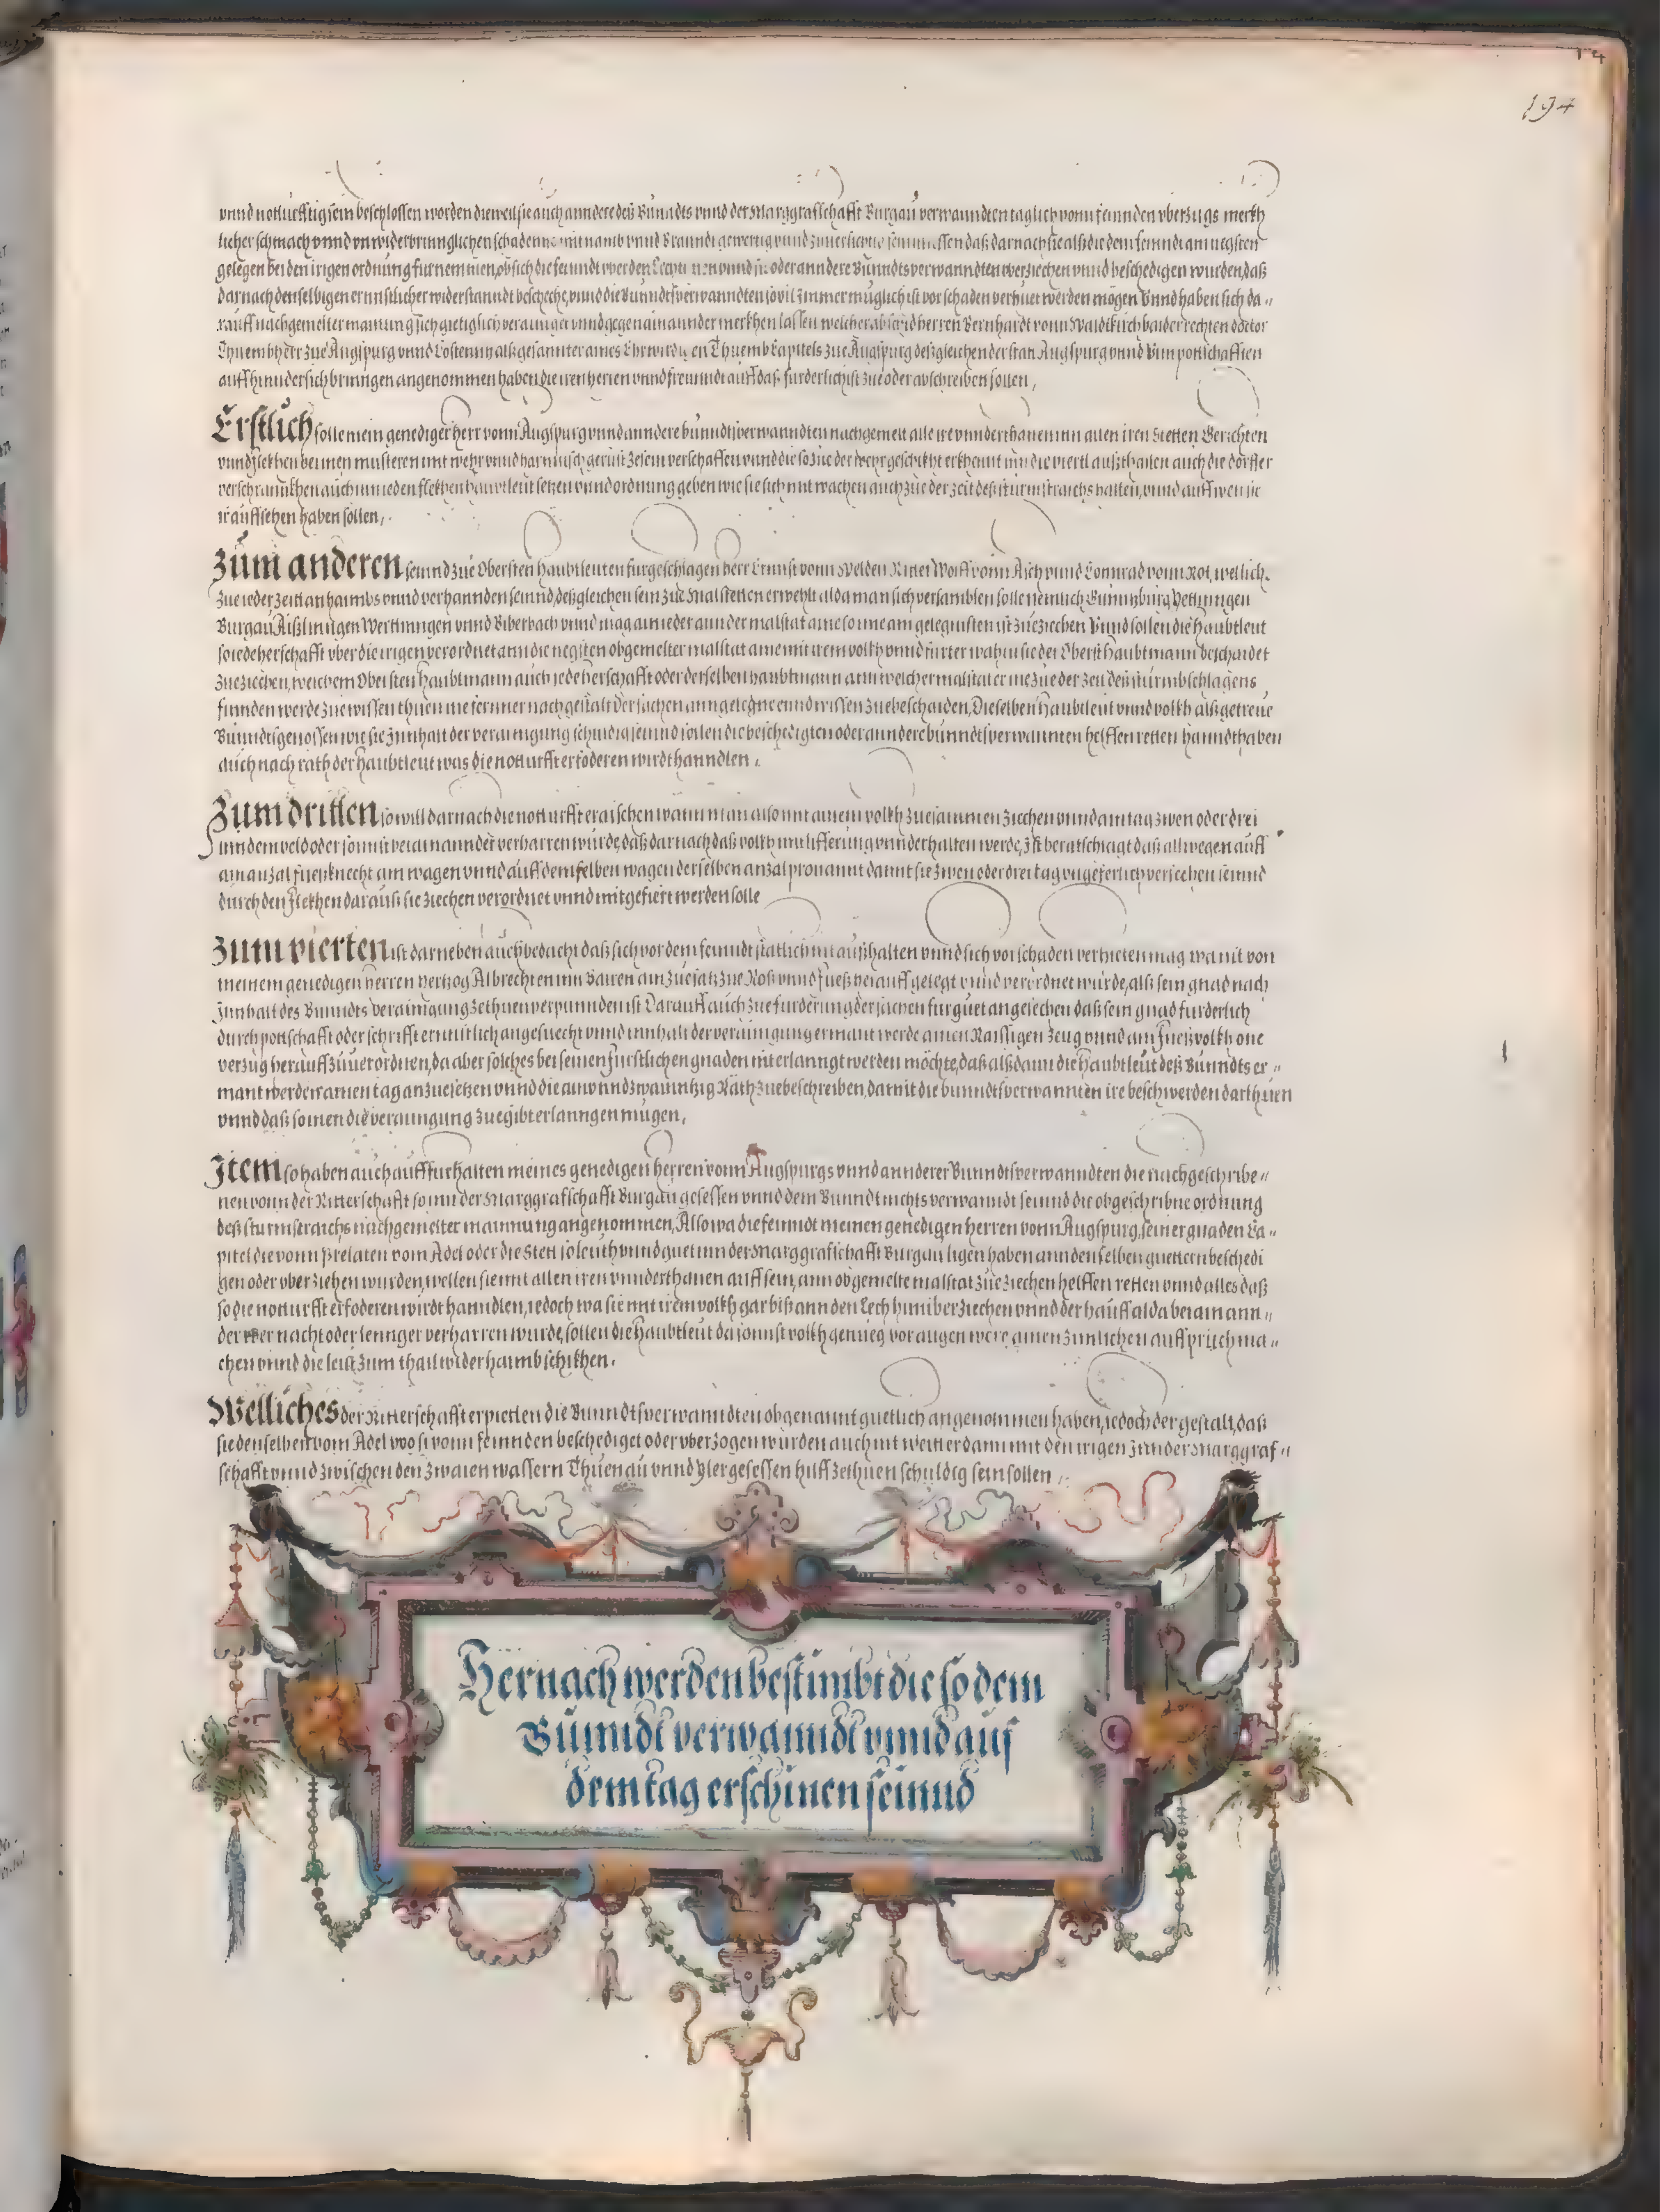 14
194
vnnd notturfftig sein beschlossen worden dieweil sie auch anndere deß Bunndts vnnd der Marggrafschafft Burgau verwanndten taglich vonn feinnden vberzugs merkh
licher schmach vnnd vnwiderbrinnglichen schadenns mit namb vnnd Branndt gewertig vnnd sein daß darnach sie alß die dem feinndt am negsten
gelegen bei den irigen ordnung furnemmen, ob sich die feinndt werden vnnd sie oder anndere Bunndtsverwanndten vberziechen vnnd beschedigen wurden, daß
darnach denselbigen ernnstlicher widerstanndt bescheche, vnnd die Bunndtsverwanndten sovil immer muglich ist vor schaden verhuet werden mögen Vnnd haben sich da-
rauff nachgemelter mainung sich gietiglich verainiget vnnd gegen ainannder merkhen lassen welcher abschid herren Bernhardt vonn Waldtkirch baider rechten doctor
Thuembherr zue Augspurg vnnd Costenntz alß gesannter aines Ehrwirdigen Thuemb Capitels zue Augspurg deßgleichen der stat Augspurg vnnd Vlm pottschafften
auff hinndersichbringen angenommen haben die iren herren vnnd freunndt auff daß furderlichist zue oder abschreiben sollen,
Erstlich solle mein genediger herr vonn Augspurg vnnd anndere bunndtsverwanndten nachgemelt alle ire vnnderthanen inn allen iren Stetten Gerichten
vnnd flekhen bei inen musteren mit wehr vnnd harnnisch gerüst ze sein verschaffen vnnd die so zue der wehr geschikht erkhennt inn die viertl außthailen auch die dörffer
verschrannkhen auch inn ieden flekhen haubtleut setzen vnnd ordnung geben wie sie sich mit wachen auch zue der zeit deß sturmstraichs halten, vnnd auff wen sie
ir auffsehen haben sollen,
Zum anderen seinnd zue Obersten Haubtleuten furgeschlagen herr Ernnst vonn Welden Ritter Wolff vonn Aich vnnd Connrad vonn Rot, wellich
zue ieder zeitt anhaimbs vnnd verhannden seinnd, deßgleichen sein zue Malstetten erwehlt alda man sich versamblen solle nemlich Gunntzburg Jettinngen
Burgau Aißlingen Werttinngen vnnd Biberbach vnnd mag ain ieder an der malstat aine so ime am gelegnisten ist zueziechen Vnnd sollen die Haubtleut
so iede herschafft vber die irigen verordnet ann die negsten obgemelter malstat aine mit irem volkh vnnd furter wahin sie der Oberst Haubtmann beschaidet
zueziechen, welchem Obersten Haubtmann auch iede herschafft oder derselben haubtmann ann welcher malstat er ine zue der zeit deß sturmbschlagens
finnden werde zuewissen thuen ine ferrner nach gestalt der sachen anngelegne ennd wissen zuebeschaiden, Dieselben Haubtleut vnnd volkh alß getreue
Bunndtsgenossen wie sie Innhalt der verainigung schuldig seinnd sollen die beschedigten oder anndere bunndtsverwannten helffen retten hanndthaben
auch nach rath der Haubtleut was die notturfft erfoderen wirdt hanndlen,
Zum dritten so will darnach die notturfft eraischen wann man also mit ainem volkh zuesammen ziechen vnnd ain tag zwen oder drei
inn dem veld oder sonnst bei ainannder verharren wurde, daß darnach daß volkh inn lifferung vnnderhalten werde, Ist beratschlagt daß allwegen auff
ain anzal fueßknecht ain wagen vnnd auff demselben wagen derselben anzal prouannt damit sie zwen oder drei tag vngeferlich versechen seinnd
durch den flekhen darauß sie ziechen verordnet vnnd mitgefiert werden solle
Zum vierten ist darneben auch bedacht daß sich vor dem feinndt statlich nit aufhalten vnnd sich vor schaden verhieten mag wa nit von
meinem genedigen herren hertzog Albrechten inn Bairen ain zuesatz zue Roß vnnd fueß herauff gelegt vnnd verordnet wurde, alß sein gnad nach
Innhalt des Bunndts verainigung zethuen verpunnden ist Darauff auch zue furderung der sachen fur guet angesechen daß sein gnad furderlich
durch pottschafft oder schrifft ernnstlich angesuecht vnnd innhalt der verainigung ermant werde ainen Raissigen Zeug vnnd ain fueßvolkh one
verzug herauff zuuerordnen, da aber solches bei seinen furstlichen gnaden nit erlanngt werden möchte, daß alßdann die Haubtleut deß Bunndts er-
mant werden ainen tag anzuesetzen vnnd die ain vnnd zwainntzig Räth zuebeschreiben, damit die bunndtsverwannten ire beschwerden darthuen
vnnd daß so inen die verainigung zuegibt erlanngen mügen,
Item so haben auch auff furhalten meines genedigen herren vonn Augspurgs vnnd annderer Bunndtsverwanndten die nachgeschribe-
nen vonn der Ritterschafft so inn der Marggrafschafft Burgau gesessen vnnd dem Bunndt nichts verwanndt seinnd die obgeschribne ordnung
deß sturmstraichs nachgemelter mainnung angenommen, Also wa die feinndt meinen genedigen herren vonn Augspurg, seiner gnaden Ca-
pitel die vonn Prelaten vom Adel oder die Stett so leuth vnnd guet inn der Marggrafschafft Burgau ligen haben ann denselben guettern beschedi
gen oder vberziehen wurden, wellen sie mit allen iren vnnderthanen auff sein, ann obgemelte malstat zueziechen helffen retten vnnd alles daß
so die notturfft erfoderen wirdt hanndlen, iedoch wa sie mit irem volkh gar biß ann den Lech hinüber ziechen vnnd der hauff alda bei ainann-
der vber nacht oder lennger verharren wurde, sollen die Haubtleut da sonnst volkh genueg vor augen were ainen zimlichen auffpruch ma-
chen vnnd die leüt zum thail wider haimb schikhen.
Welliches der Ritterschafft erpietten die Bunndtsverwanndten obgenannt guetlich angenommen haben, iedoch der gestalt, daß
sie denselben vom Adel woo si vonn feinnden beschediget oder vberzogen wurden auch nit weitter dann mit den irigen Inn der Marggraf-
schafft vnnd zwischen den zwaien wassern Thuenau vnnd Yler gesessen hilff zethuen schuldig sein sollen,
Hernach werden bestimbt die so dem
Bunndt verwanndt vnnd auf
dem tag erschinen seinnd